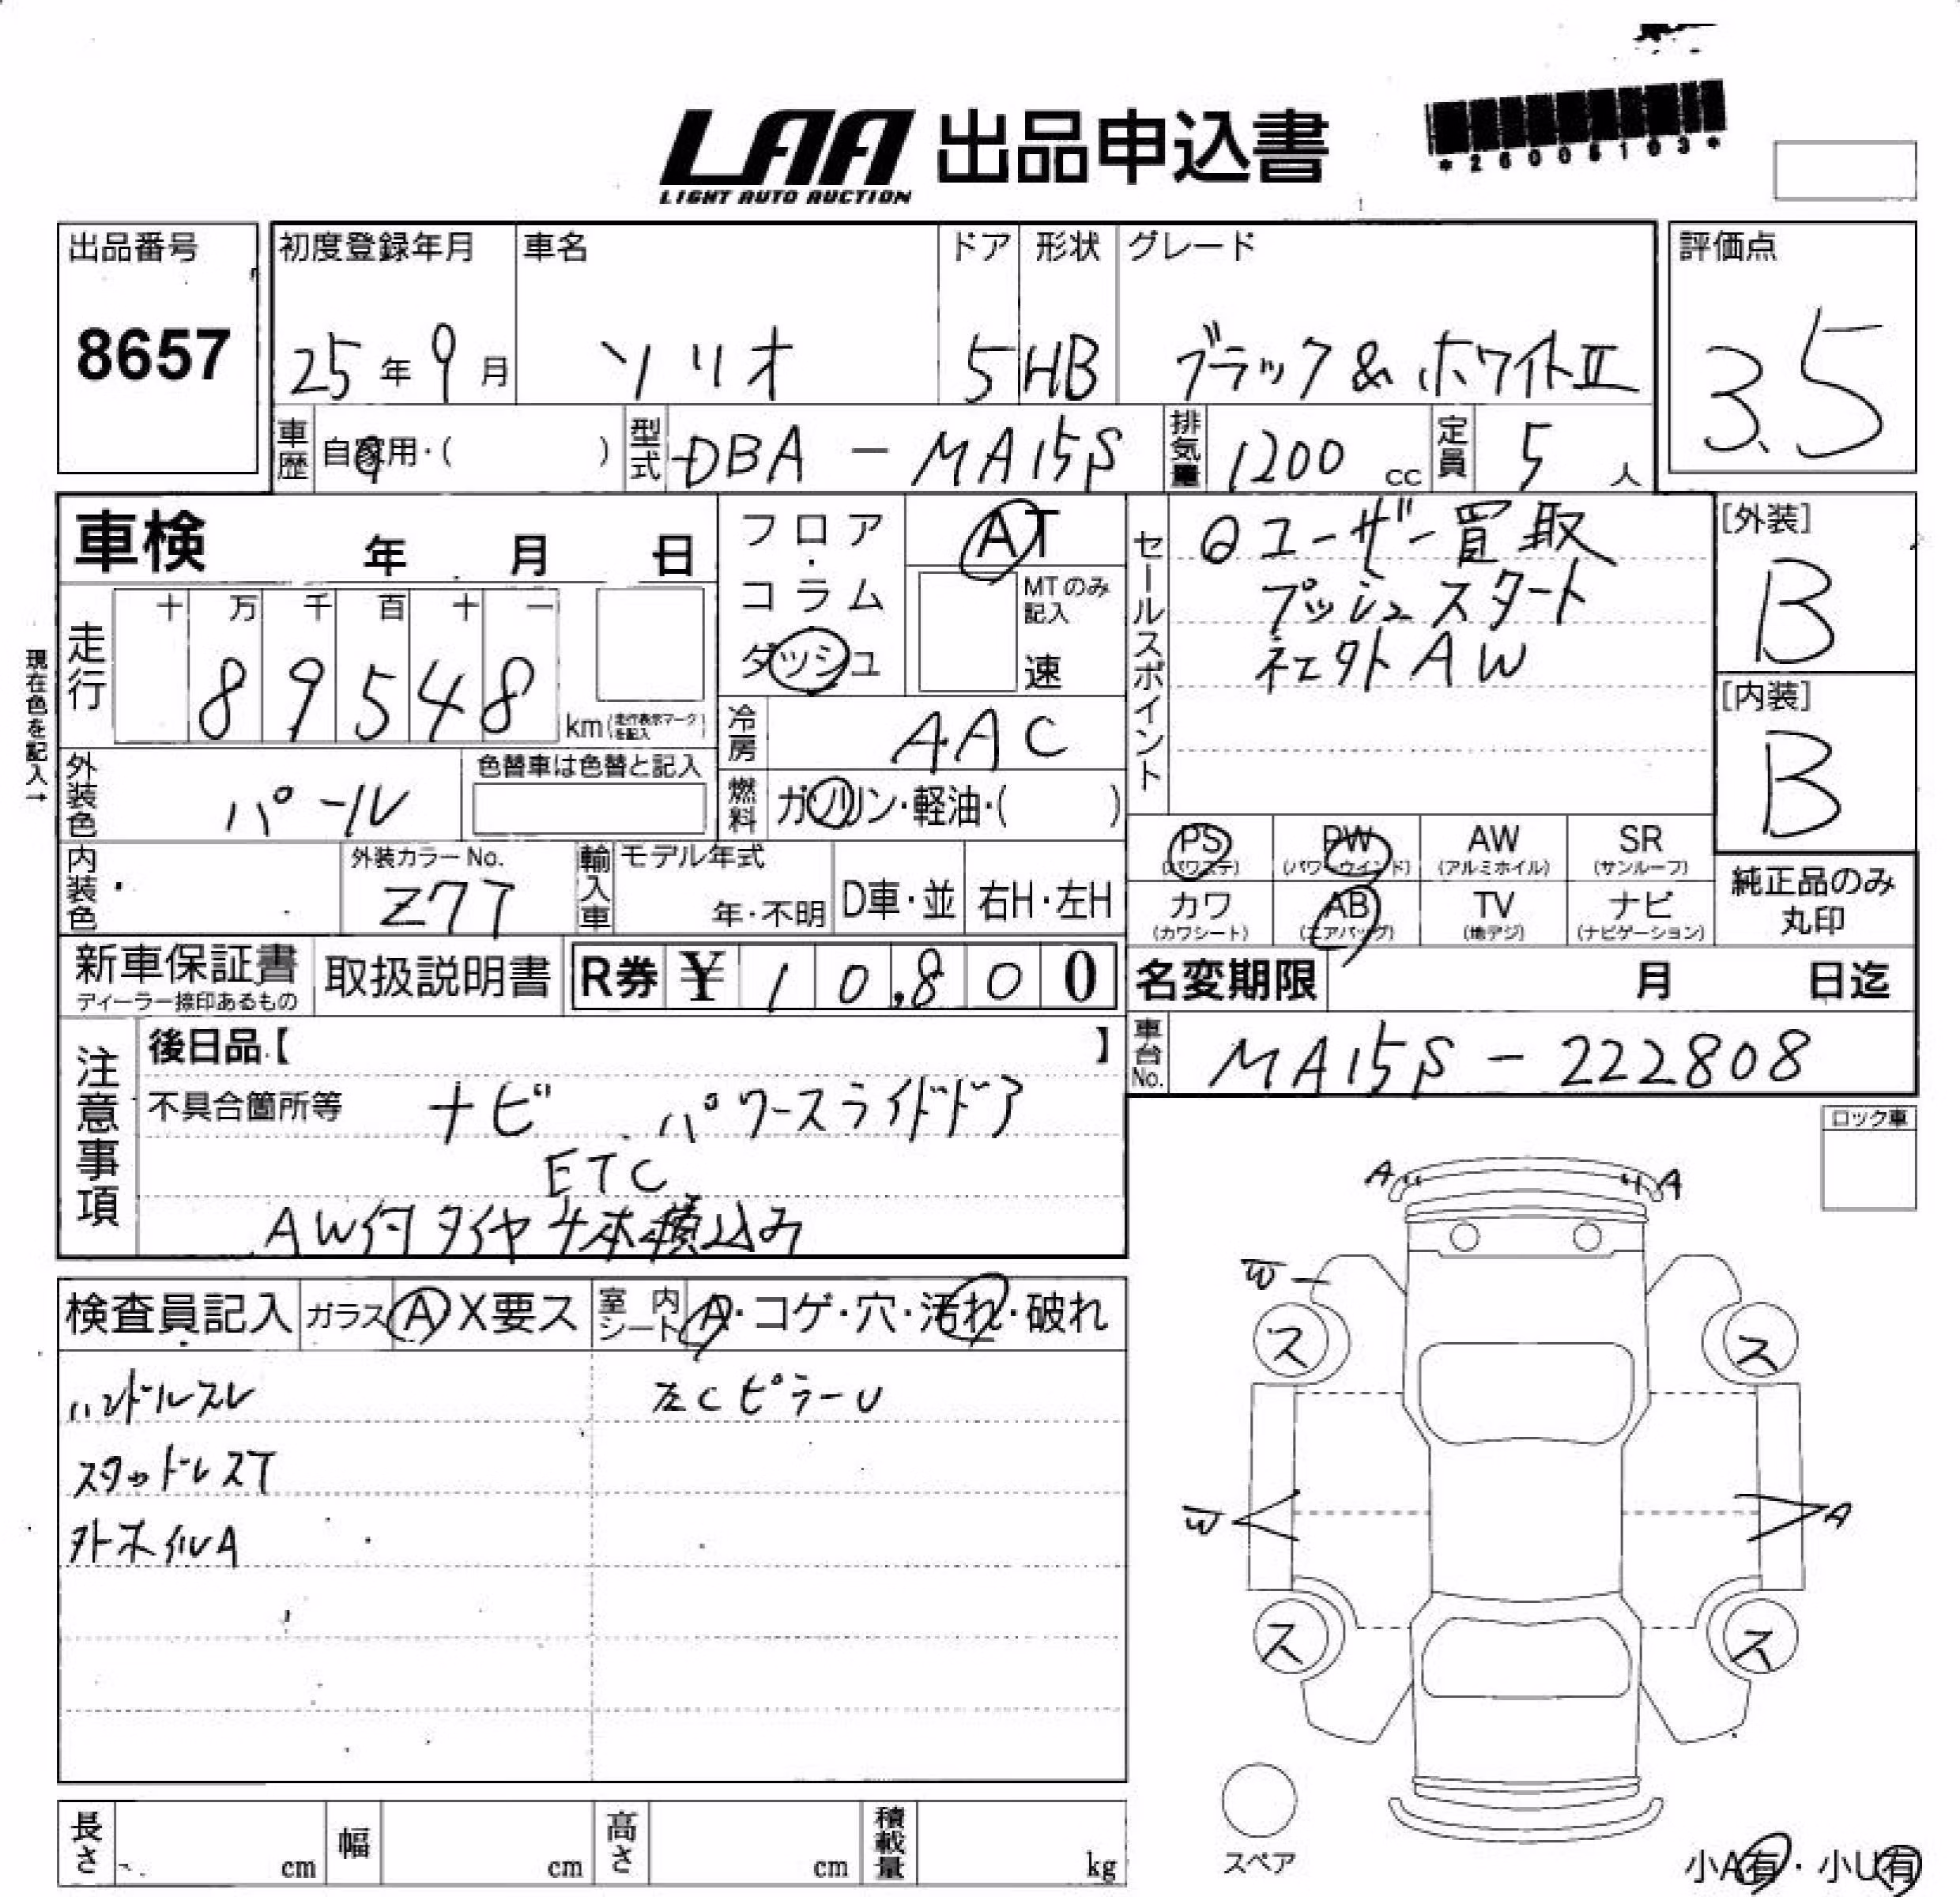 LAA 出品申込書
LIGHT AUTO AUCTION
*26006103*
出品番号
8657
初度登録年月
25年9月
車名
ソリオ
ドア
5
形状
HB
グレード
ブラック&ホワイトII
評価点
3.5
車歴
自家用・( )
型式
DBA - MA15S
排気量
1200 cc
定員
5 人
車検 年 月 日
現在色を記入→
走行
十 万 千 百 十 一
89548
km(走行表示マークを記入)
フロア・コラム
ダッシュ
AT
MTのみ記入
速
セールスポイント
①ユーザー買取
プッシュスタート
社外AW
[外装]
B
[内装]
B
冷房
AAC
外装色
パール
色替車は色替と記入
燃料
ガソリン・軽油・( )
内装色
外装カラーNo.
Z7T
輸入車
モデル年式
年・不明
D車・並
右H・左H
PS
(パワステ)
PW
(パワーウインド)
AW
(アルミホイル)
SR
(サンルーフ)
カワ
(カワシート)
AB
(エアバッグ)
TV
(地デジ)
ナビ
(ナビゲーション)
純正品のみ
丸印
新車保証書
ディーラー捺印あるもの
取扱説明書
R券 ¥ 10,800
名変期限 月 日迄
車台No.
MA15S - 222808
注意事項
後日品【 】
不具合箇所等 ナビ パワースライドドア
ETC
AW付タイヤ4本積込み
ロック車
A A
W
ス ス
W A
ス ス
スペア
小A有・小U有
検査員記入
ガラス A X要ス
室内シート A・コゲ・穴・汚れ・破れ
ハンドルスレ
左CピラーU
スタッドレスT
外ホイルA
長さ cm
幅 cm
高さ cm
積載量 kg